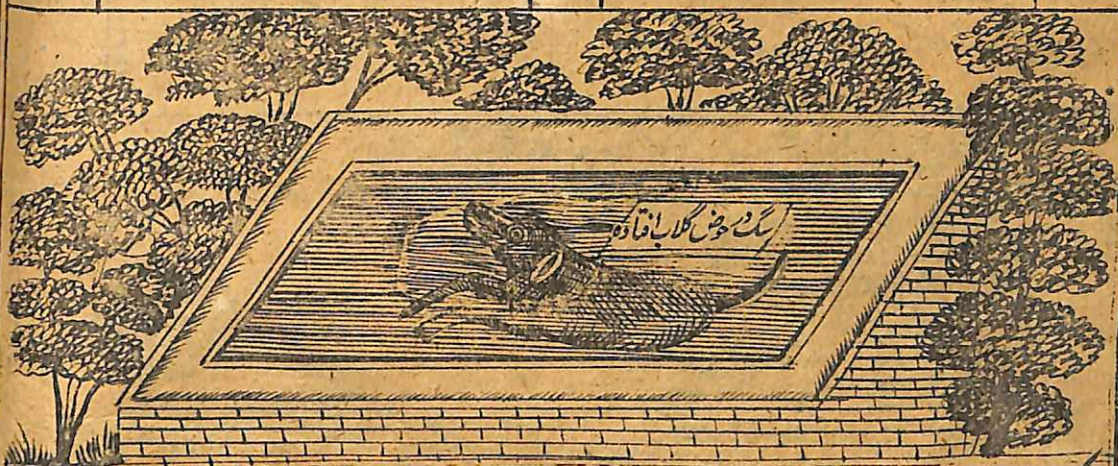 سگ در حوض گلاب افتاده